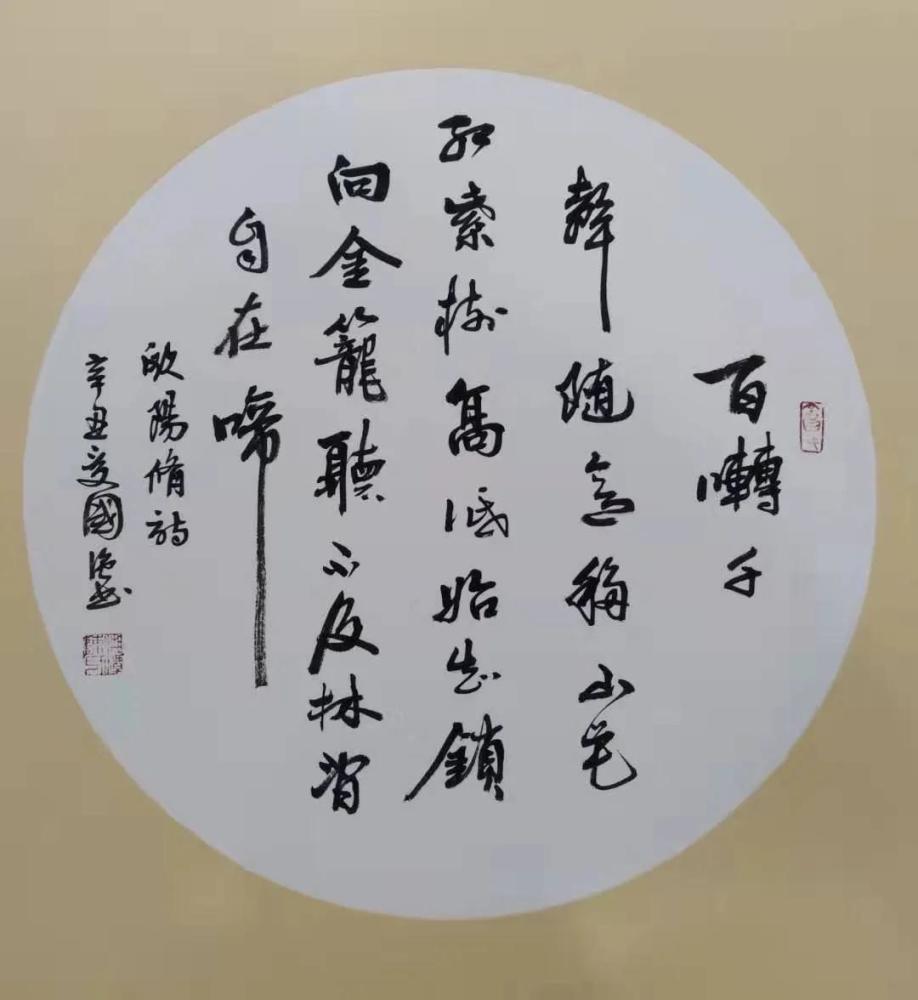 百囀千
聲隨意移山花
紅紫樹高低始知鎖
向金籠聽不及林間
自在啼
歐陽脩詩
辛丑夏國書